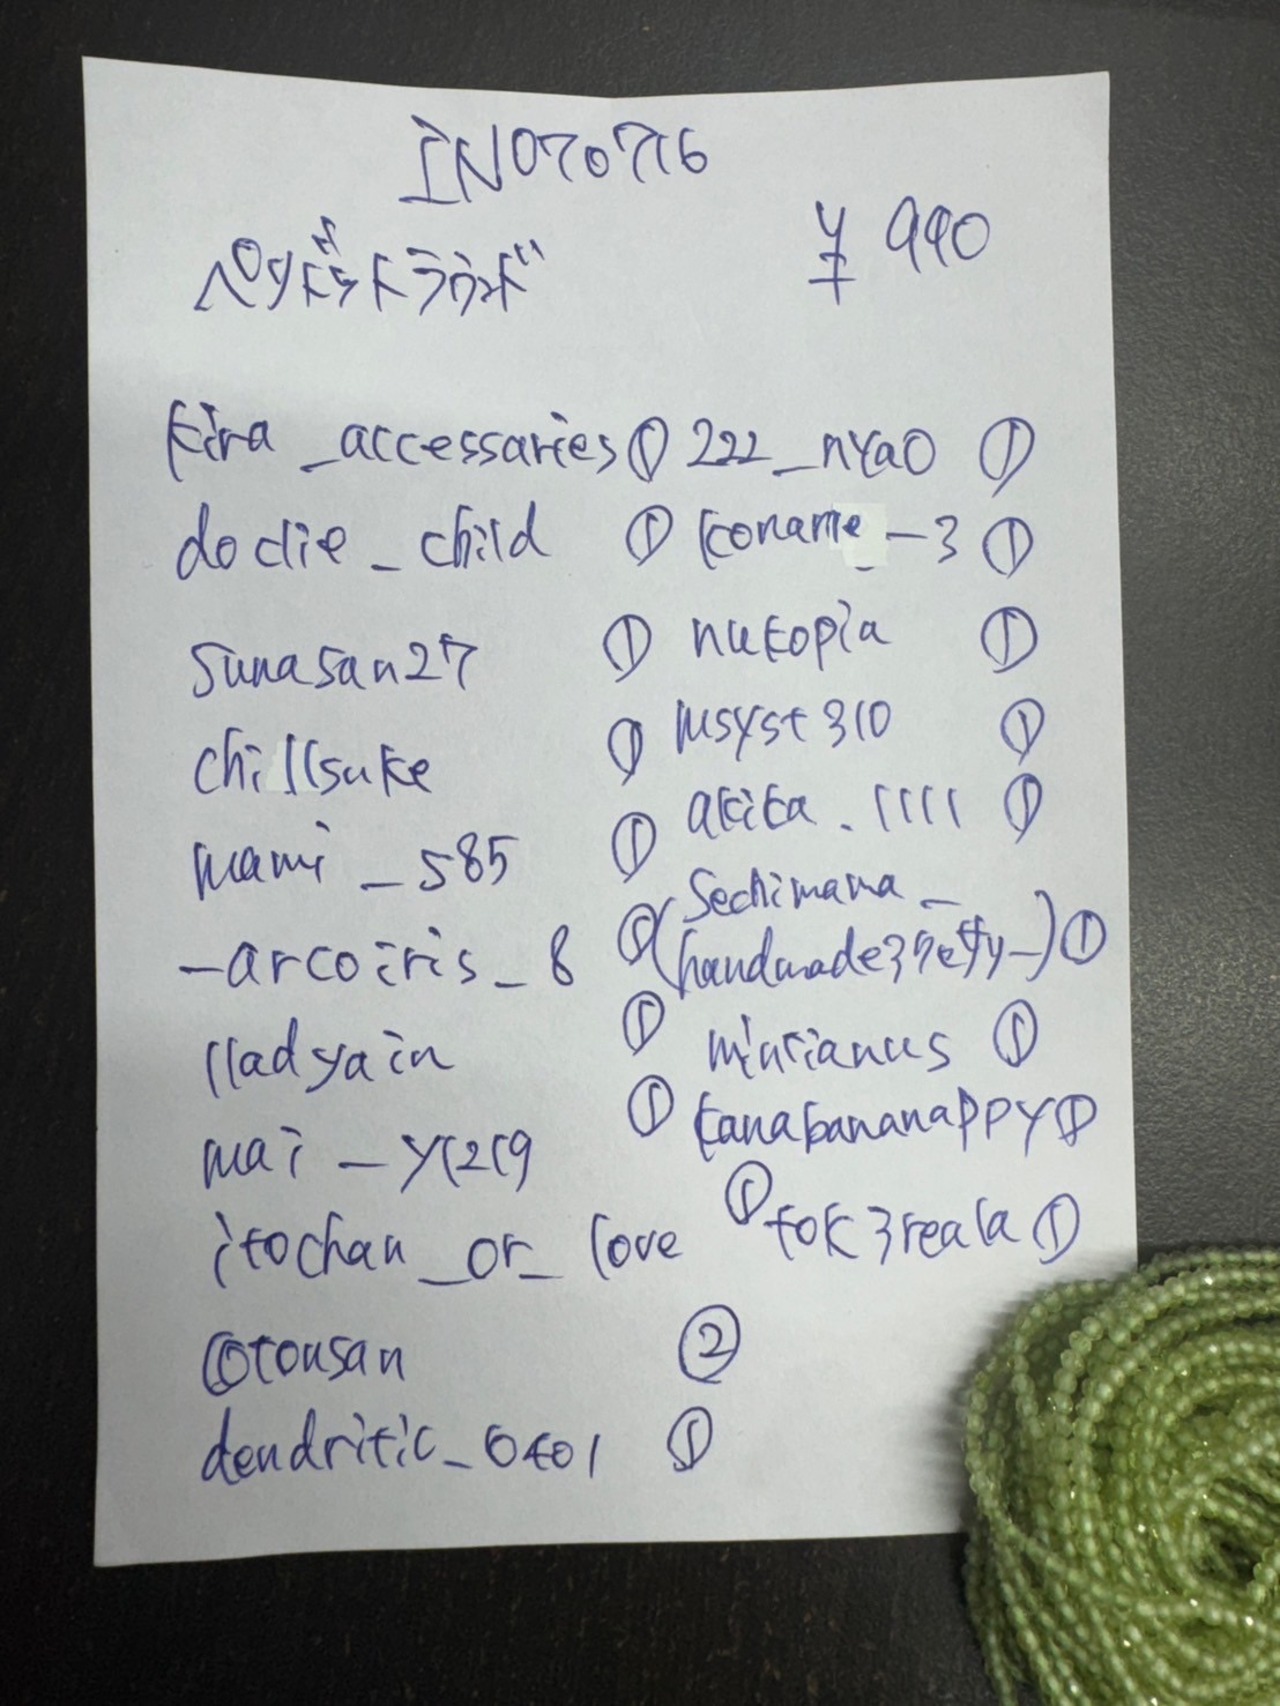 IN070716
ペリドットラウンド ¥990
kira_accessaries ① 222_nyao ①
doclie_child ① koname_-3 ①
sunasan27 ① nukopia ①
chillsuke ① msyst310 ①
mami_585 ① akika.1111 ①
-arcoiris_8 ① (Sechimama_
handmade3%etfy-) ①
lladyain ① minrianus ①
mai_y1219 ① kanabananappy ①
itochan_or_love ① tok3reala ①
cotonsan ②
dendritic_0401 ①